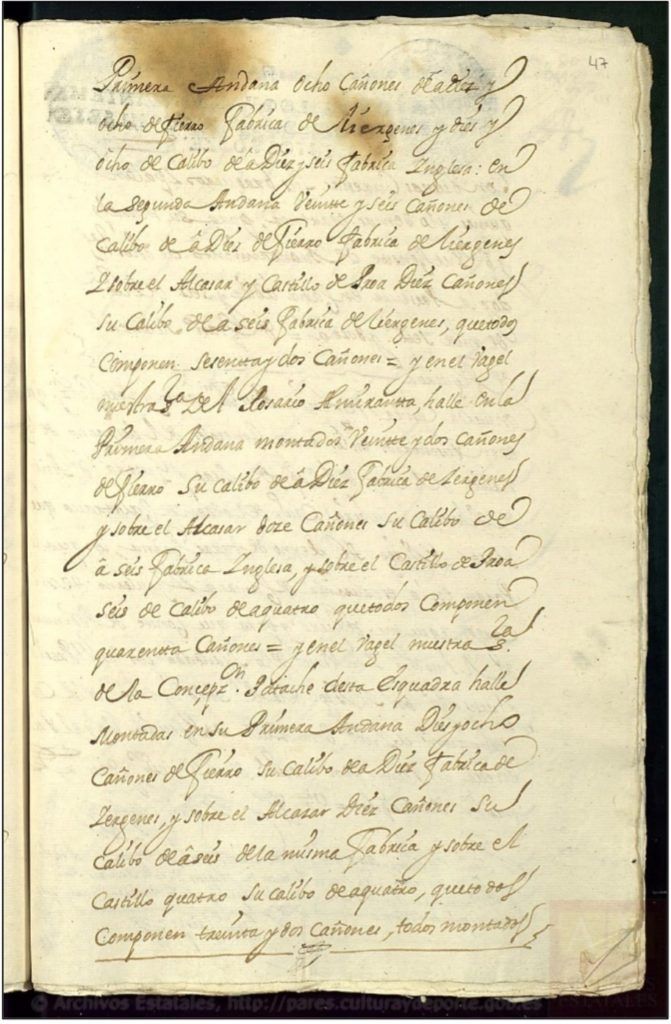 47
Primera Andana ocho Cañones de a diez y
ocho de fierro fabrica de liergenes y dies y
ocho de Calibo de â Diez y seis fabrica Inglesa: en
la segunda Andana Veintte y seis Cañones de
Calibo de â Dies de fierro fabrica de liergenes
Y sobre el Alcasar y Castillo de Proa Diez Cañones
su Calibo de a seis fabrica de liergenes, que todos
Componen sesentta y dos Cañones = y en el Vagel
nuestra Sra Del Rosario Almirantta, halle en la
Primera Andana montados Veintte y dos cañones
de fierro su calibo de â Diez fabrica de lergenes
y sobre el Alcasar doze Cañones su Calibo de
â seis fabrica Inglesa, y sobre el Castillo de Proa
seis de calibo de a quatro que todos Componen
quarentta Cañones = y en el Vagel nuestra Sra
de la Concepzon. Patache desta esquadra halle
Montadas en su Primera Andana Dies y ocho
Cañones de fierro su calibo de a Diez fabrica de
lergenes, y sobre el Alcazar Diez Cañones su
Calibo de â seis de la misma fabrica y sobre el
Castillo quatro su calibo de a quatro, que todos
Componen treinta y dos Cañones, todos montados
© Archivos Estatales, http://pares.culturaydeporte.gob.es